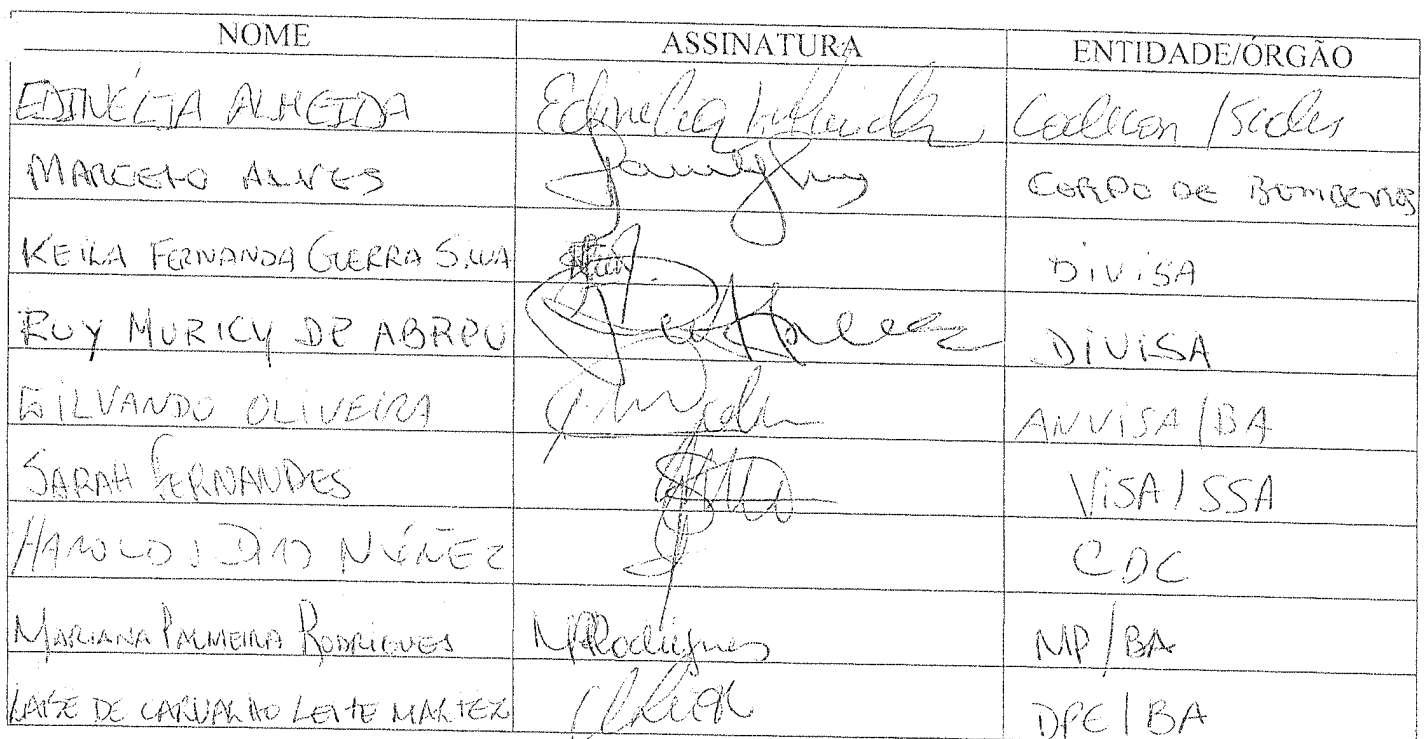 NOME ASSINATURA ENTIDADE/ÓRGÃO
EDINÉLIA ALMEIDA Edinélia Almeida Codecon /
MARCELO ALVES CORPO DE BOMBEIROS
KEILA FERNANDA GUERRA SILVA DIVISA
RUY MURICY DE ABREU DIVISA
GILVANDO OLIVEIRA ANVISA/BA
SARAH FERNANDES VISA/SSA
HAROLDO J DIAS NÚÑEZ CDC
MARIANA PALMEIRA RODRIGUES MPRodrigues MP/BA
LAISE DE CARVALHO LEITE DPE/BA